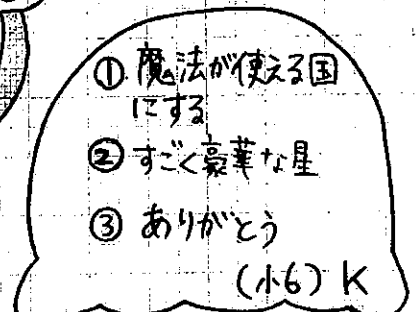 ① 魔法が使える国
にする
② すごく豪華な星
③ ありがとう
(小6) K